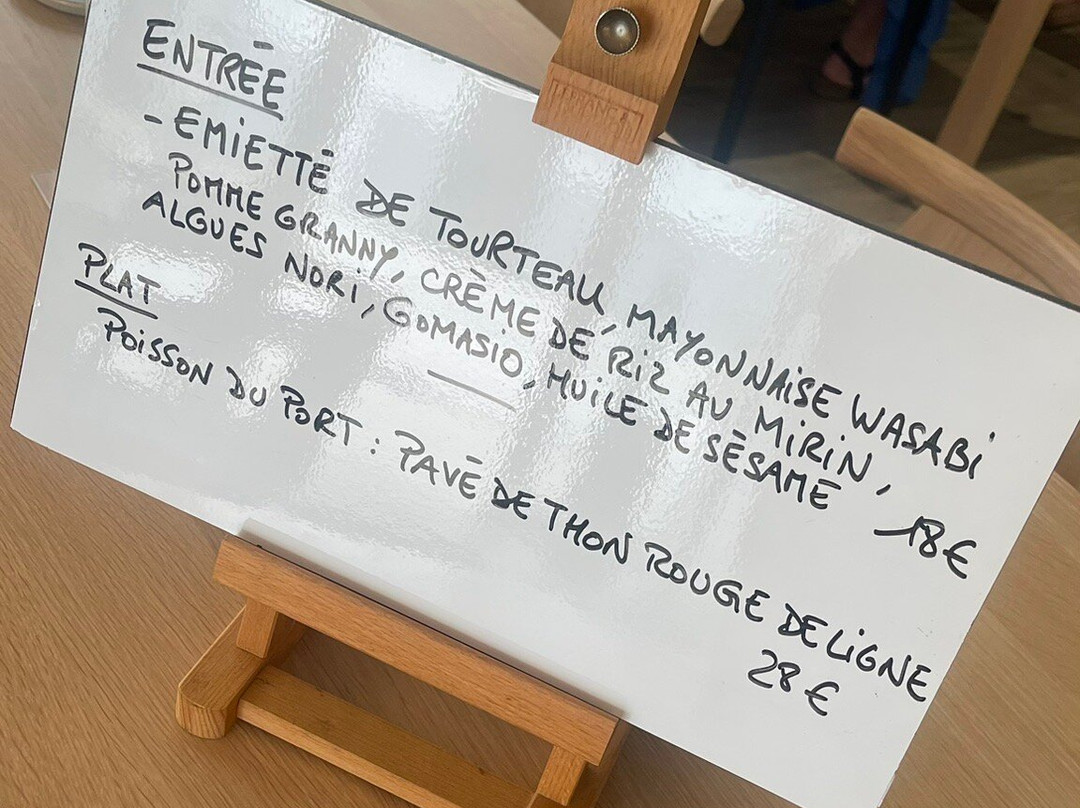 ENTRÉE
- EMIETTÉ DE TOURTEAU, MAYONNAISE WASABI
POMME GRANNY, CRÈME DE RIZ AU MIRIN,
ALGUES NORI, GOMASIO, HUILE DE SÉSAME
18€
PLAT
POISSON DU PORT : PAVÉ DE THON ROUGE DE LIGNE
28€